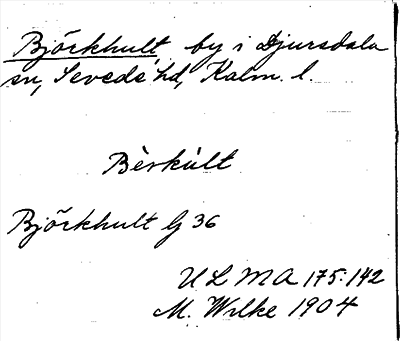 Björkhult by i Djursdala
sn, Sevede hd, Kalm. l.
Bèrkùlt
Björkhult G 36
ULMA 175:142
M. Wilke 1904